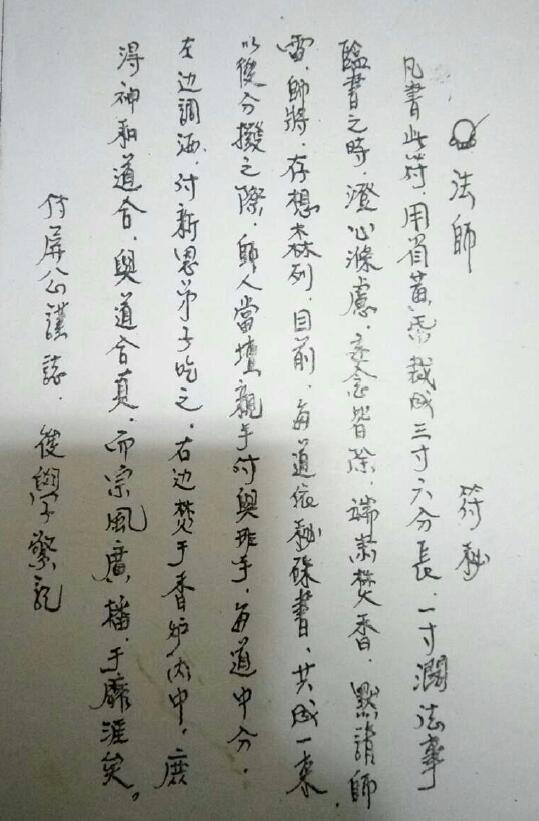 法師 符秘
凡書此符，用眉黄帋裁成三寸六分長，一寸濶法事
臨書之時，澄心滌慮，妄念皆除，端然焚香，默請師
雷，帥將，存想森列，目前，每道依秘硃書，共成一束，
以後分撥之際，師人當壇親手付與班手，每道中分，
左边調酒，付新恩弟子吃之，右边焚于香炉内中，庶
得神和道合，與道合真，而宗風廣播，于靡涯矣。
付屏公謹誌， 後學